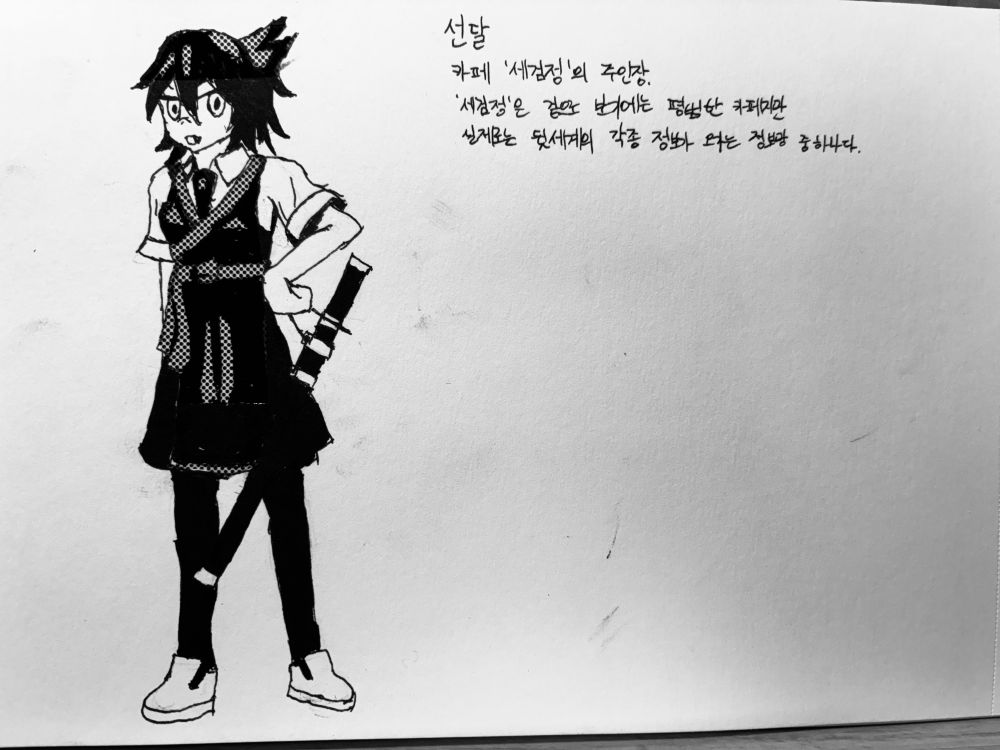 선달
카페 '세검정'의 주인장.
'세검정'은 겉으로 보기에는 평범한 카페지만
실제로는 뒷세계의 각종 정보가 오가는 정보망 중 하나다.